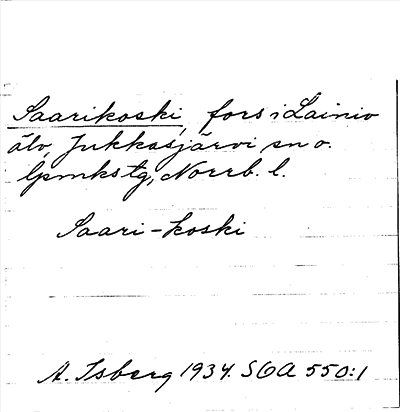 Saarikoski, fors i Lainio
älv, Jukkasjärvi sn o.
lpmkstg, Norrb. l.
Saari-koski
A. Isberg 1934. SOA 550:1